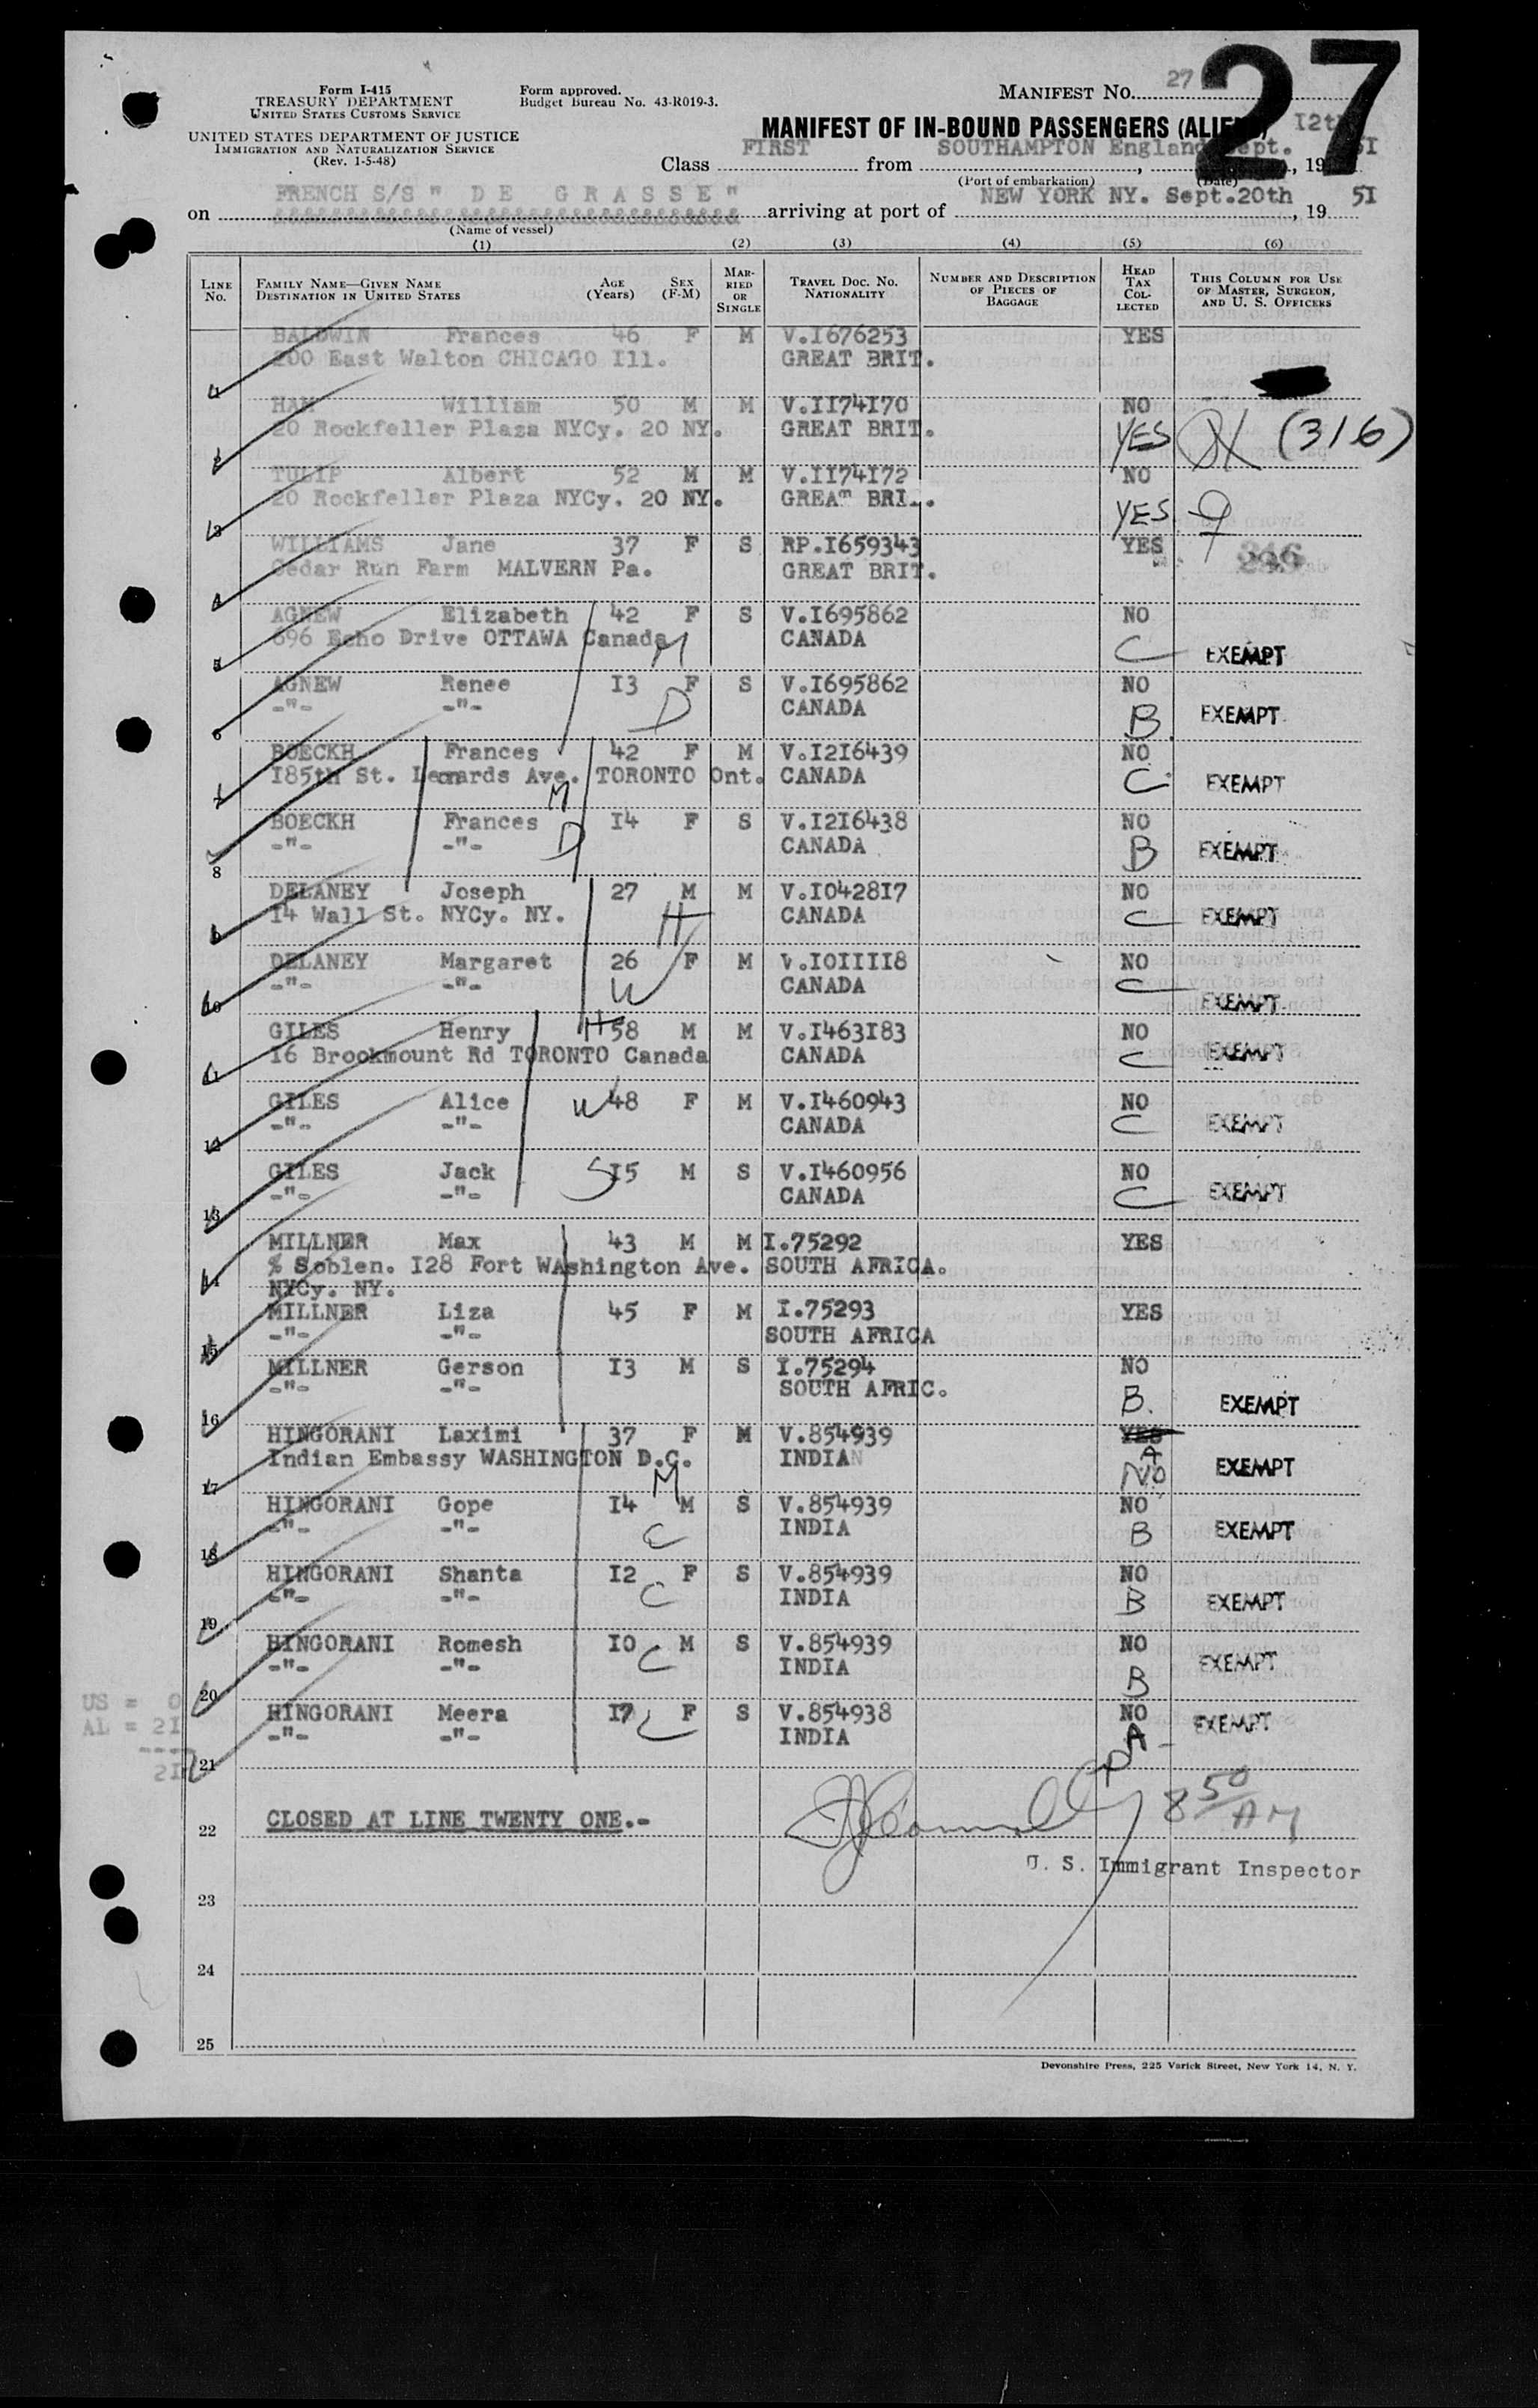 27
Form I-415
TREASURY DEPARTMENT
UNITED STATES CUSTOMS SERVICE
UNITED STATES DEPARTMENT OF JUSTICE
IMMIGRATION AND NATURALIZATION SERVICE
(Rev. 1-5-48)
Form approved.
Budget Bureau No. 43-R019-3.
MANIFEST No. 27
MANIFEST OF IN-BOUND PASSENGERS (ALIENS)
Class FIRST from SOUTHAMPTON England, Sept. I2th, 19 5I
(Port of embarkation) (Date)
on FRENCH S/S " D E G R A S S E " arriving at port of NEW YORK NY. Sept.20th, 19 5I
(Name of vessel)
(1) (2) (3) (4) (5) (6)
LINE No. FAMILY NAME—GIVEN NAME DESTINATION IN UNITED STATES AGE (Years) SEX (F-M) MARRIED OR SINGLE TRAVEL DOC. NO. NATIONALITY NUMBER AND DESCRIPTION OF PIECES OF BAGGAGE HEAD TAX COLLECTED THIS COLUMN FOR USE OF MASTER, SURGEON, AND U. S. OFFICERS
BALDWIN Frances 46 F M V.I676253 YES
200 East Walton CHICAGO Ill. GREAT BRIT.
HAM William 50 M M V.II74I70 NO
2 20 Rockfeller Plaza NYCy. 20 NY. GREAT BRIT. YES (316)
TULIP Albert 52 M M V.II74I72 NO
3 20 Rockfeller Plaza NYCy. 20 NY. GREAT BRI.. YES
WILLIAMS Jane 37 F S RP.I659343 YES
4 Cedar Run Farm MALVERN Pa. GREAT BRIT.
AGNEW Elizabeth 42 F S V.I695862 NO
5 696 Echo Drive OTTAWA Canada M CANADA C EXEMPT
AGNEW Renee I3 F S V.I695862 NO
6 -"- -"- D CANADA B EXEMPT
BOECKH Frances 42 F M V.I2I6439 NO
7 I85th St. Leonards Ave. TORONTO Ont. CANADA C EXEMPT
M
BOECKH Frances I4 F S V.I2I6438 NO
8 -"- -"- D CANADA B EXEMPT
DELANEY Joseph 27 M M V.I0428I7 NO
9 I4 Wall St. NYCy. NY. H CANADA C EXEMPT
DELANEY Margaret 26 F M V.I0IIII8 NO
10 -"- -"- W CANADA C EXEMPT
GILES Henry H 58 M M V.I463I83 NO
11 I6 Brookmount Rd TORONTO Canada CANADA C EXEMPT
GILES Alice W 48 F M V.I460943 NO
12 -"- -"- CANADA C EXEMPT
GILES Jack S I5 M S V.I460956 NO
13 -"- -"- CANADA C EXEMPT
MILLNER Max 43 M M I.75292 YES
14 % Soblen. I28 Fort WAshington Ave. SOUTH AFRICA.
NYCy. NY.
MILLNER Liza 45 F M I.75293 YES
15 -"- -"- SOUTH AFRICA
MILLNER Gerson I3 M S I.75294 NO
16 -"- -"- SOUTH AFRIC. B. EXEMPT
HINGORANI Laximi 37 F M V.854939 YES
17 Indian Embassy WASHINGTON D.C. M INDIAN A NO EXEMPT
HINGORANI Gope I4 M S V.854939 NO
18 -"- -"- C INDIA B EXEMPT
HINGORANI Shanta I2 F S V.854939 NO
19 -"- -"- C INDIA B EXEMPT
HINGORANI Romesh I0 M S V.854939 NO
20 -"- -"- C INDIA B EXEMPT
HINGORANI Meera I7 F S V.854938 NO
21 -"- -"- C INDIA A EXEMPT
US = 0
AL = 2I
----
2I
22 CLOSED AT LINE TWENTY ONE.- 8 50 AM
U. S. Immigrant Inspector
23
24
25
Devonshire Press, 225 Varick Street, New York 14, N. Y.